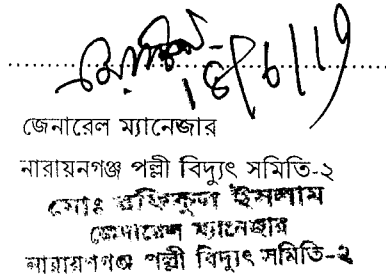 জেনারেল ম্যানেজার
নারায়নগঞ্জ পল্লী বিদ্যুৎ সমিতি-২
মোঃ রফিকুল ইসলাম
জেনারেল ম্যানেজার
নারায়ণগঞ্জ পল্লী বিদ্যুৎ সমিতি-২